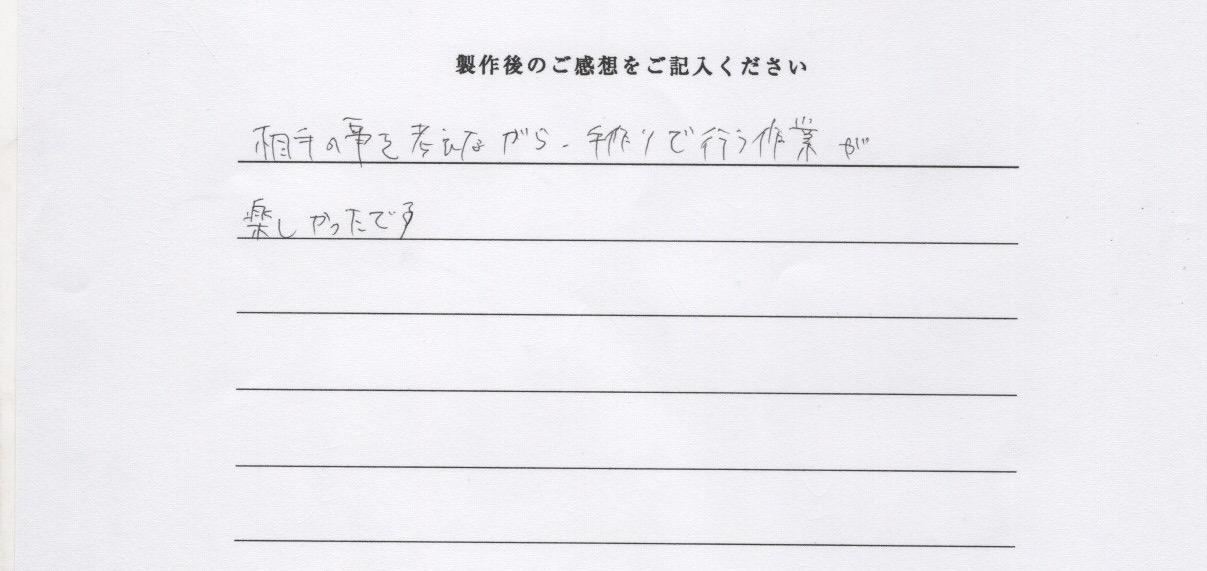 製作後のご感想をご記入ください
相手の事を考えながら、手作りで行う作業が
楽しかったです